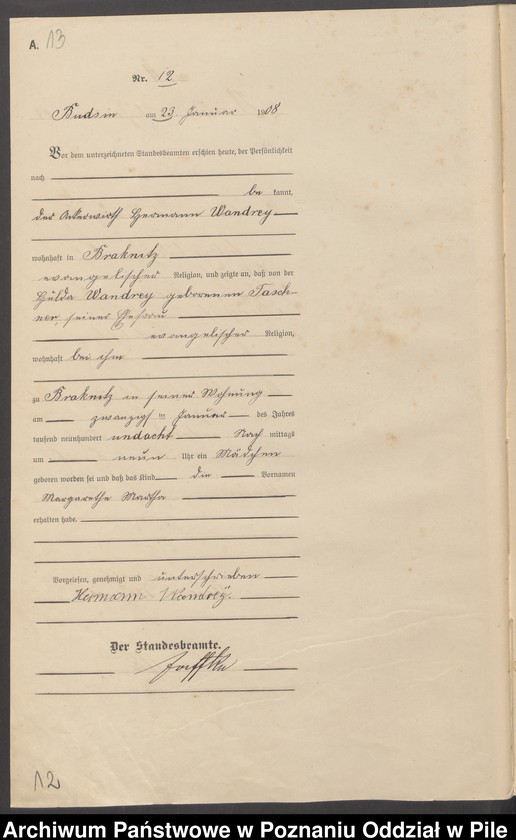 A. 13
Nr. 12
Budsin am 23 Januar 1908
Vor dem unterzeichneten Standesbeamten erschien heute, der Persönlichkeit
nach
be kannt,
der Ackerwirth Hermann Wandrey
wohnhaft in Braknitz
evangelischer Religion, und zeigte an, daß von der
Hulda Wandrey geborenen Tasch-
ner, seiner Ehefrau
evangelischer Religion,
wohnhaft bei ihm
zu Braknitz in seiner Wohnung
am zwanzigsten Januar des Jahres
tausend neunhundert und acht Nach mittags
um neun Uhr ein Mädchen
geboren worden sei und daß das Kind die Vornamen
Margarethe Martha
erhalten habe.
Vorgelesen, genehmigt und unterschrieben
Hermann Wandrey.
Der Standesbeamte.
12
Archiwum Państwowe w Poznaniu Oddział w Pile